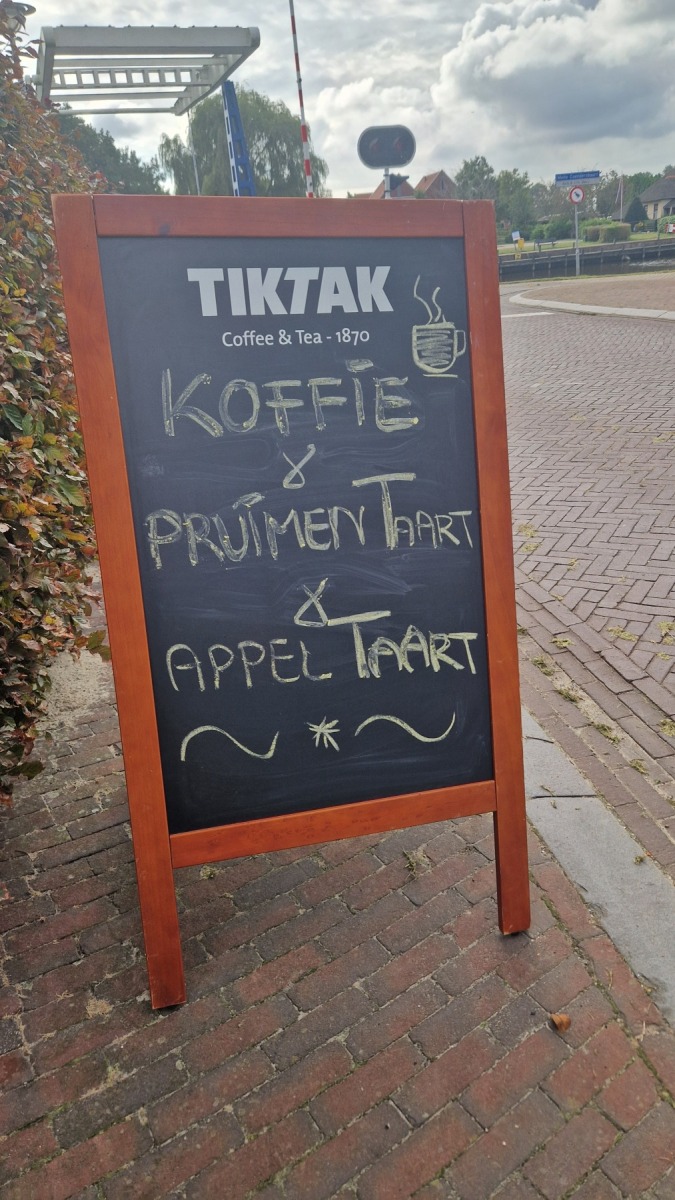 TIKTAK
Coffee & Tea - 1870
KOFFIE
&
PRUIMEN TAART
&
APPEL TAART